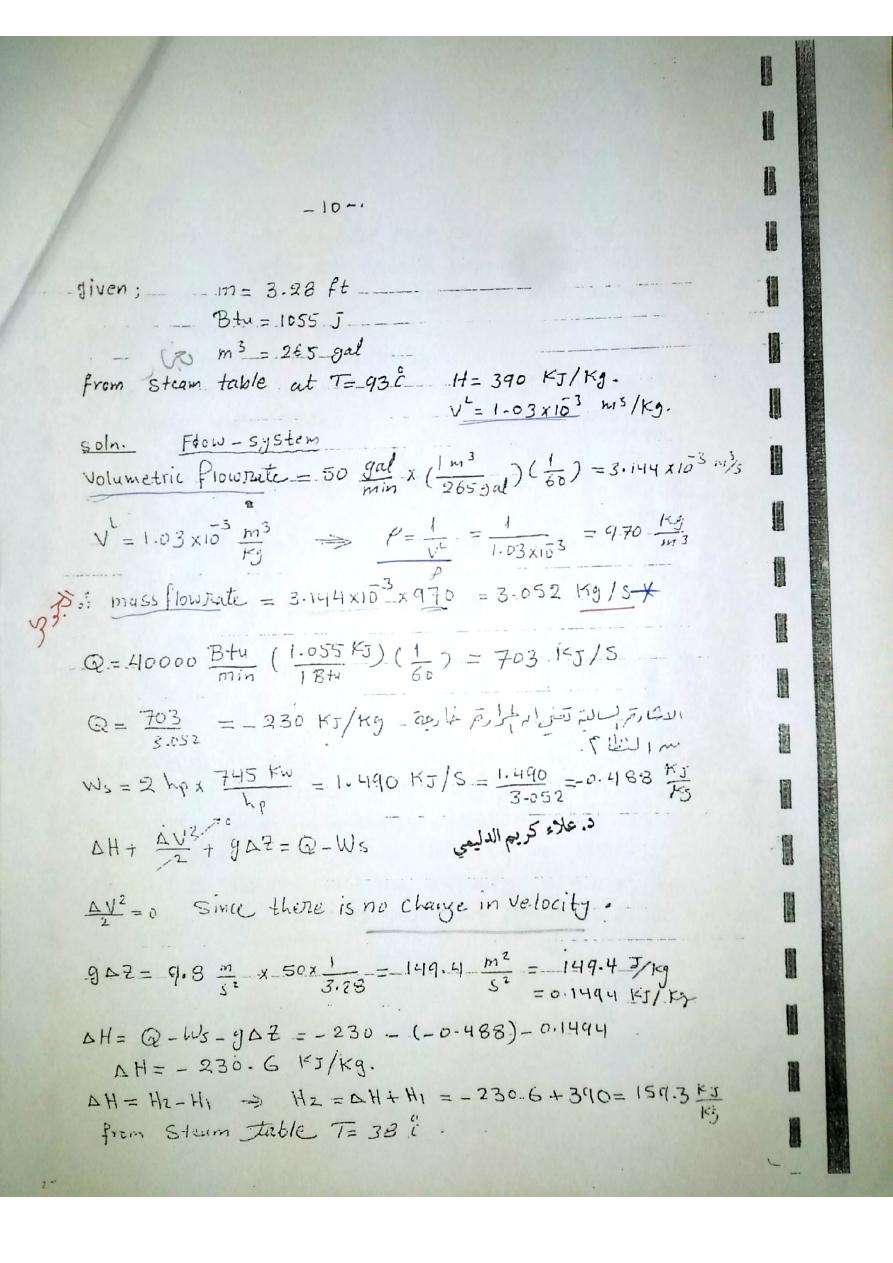 - 10 -
given ; m = 3.28 ft
Btu = 1055 J
m³ = 265 gal
from steam table at T = 93 c° H = 390 KJ/Kg.
V^L = 1.03 x 10^-3 m³/Kg.
soln. Flow - system
Volumetric flowrate = 50 gal/min x (1 m³/265 gal) (1/60) = 3.144 x 10^-3 m³/s
V^L = 1.03 x 10^-3 m³/Kg ⇒ ρ = 1/V^L = 1/1.03x10^-3 = 970 Kg/m³
∴ mass flowrate = 3.144 x 10^-3 x 970 = 3.052 Kg/s
Q = 40000 Btu/min (1.055 KJ/1 Btu) (1/60) = 703 KJ/S
Q = 703/3.052 = - 230 KJ/Kg - الاشارة السالبة تعني ان الحرارة خارجة
من النظام.
Ws = 2 hp x 745 Kw/hp = 1.490 KJ/S = 1.490/3.052 = -0.488 KJ/Kg
ΔH + ΔV²/2 + gΔZ = Q - Ws د. علاء كريم الدليمي
ΔV²/2 = 0 Since there is no change in velocity .
gΔZ = 9.8 m/s² x 50 x 1/3.28 = 149.4 m²/s² = 149.4 J/kg
= 0.1494 KJ/Kg
ΔH = Q - Ws - gΔZ = - 230 - (-0.488) - 0.1494
ΔH = - 230.6 KJ/Kg.
ΔH = H2 - H1 ⇒ H2 = ΔH + H1 = - 230.6 + 390 = 159.3 KJ/Kg
from steam table T = 38 c° .